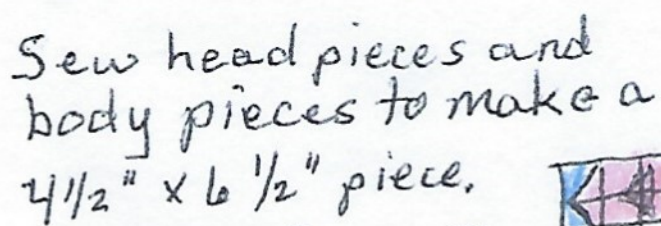 Sew head pieces and
body pieces to make a
4 1/2" x 6 1/2" piece.